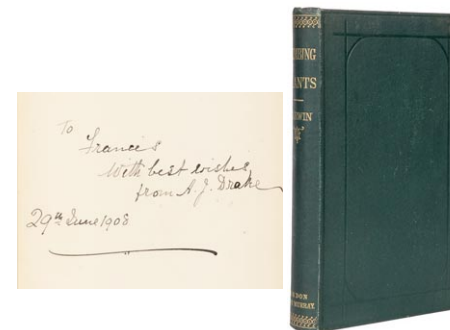 To
Francis
With best wishes
from A. J. Drake
29th June 1908
ANTS
WIN
DON
MURRAY.